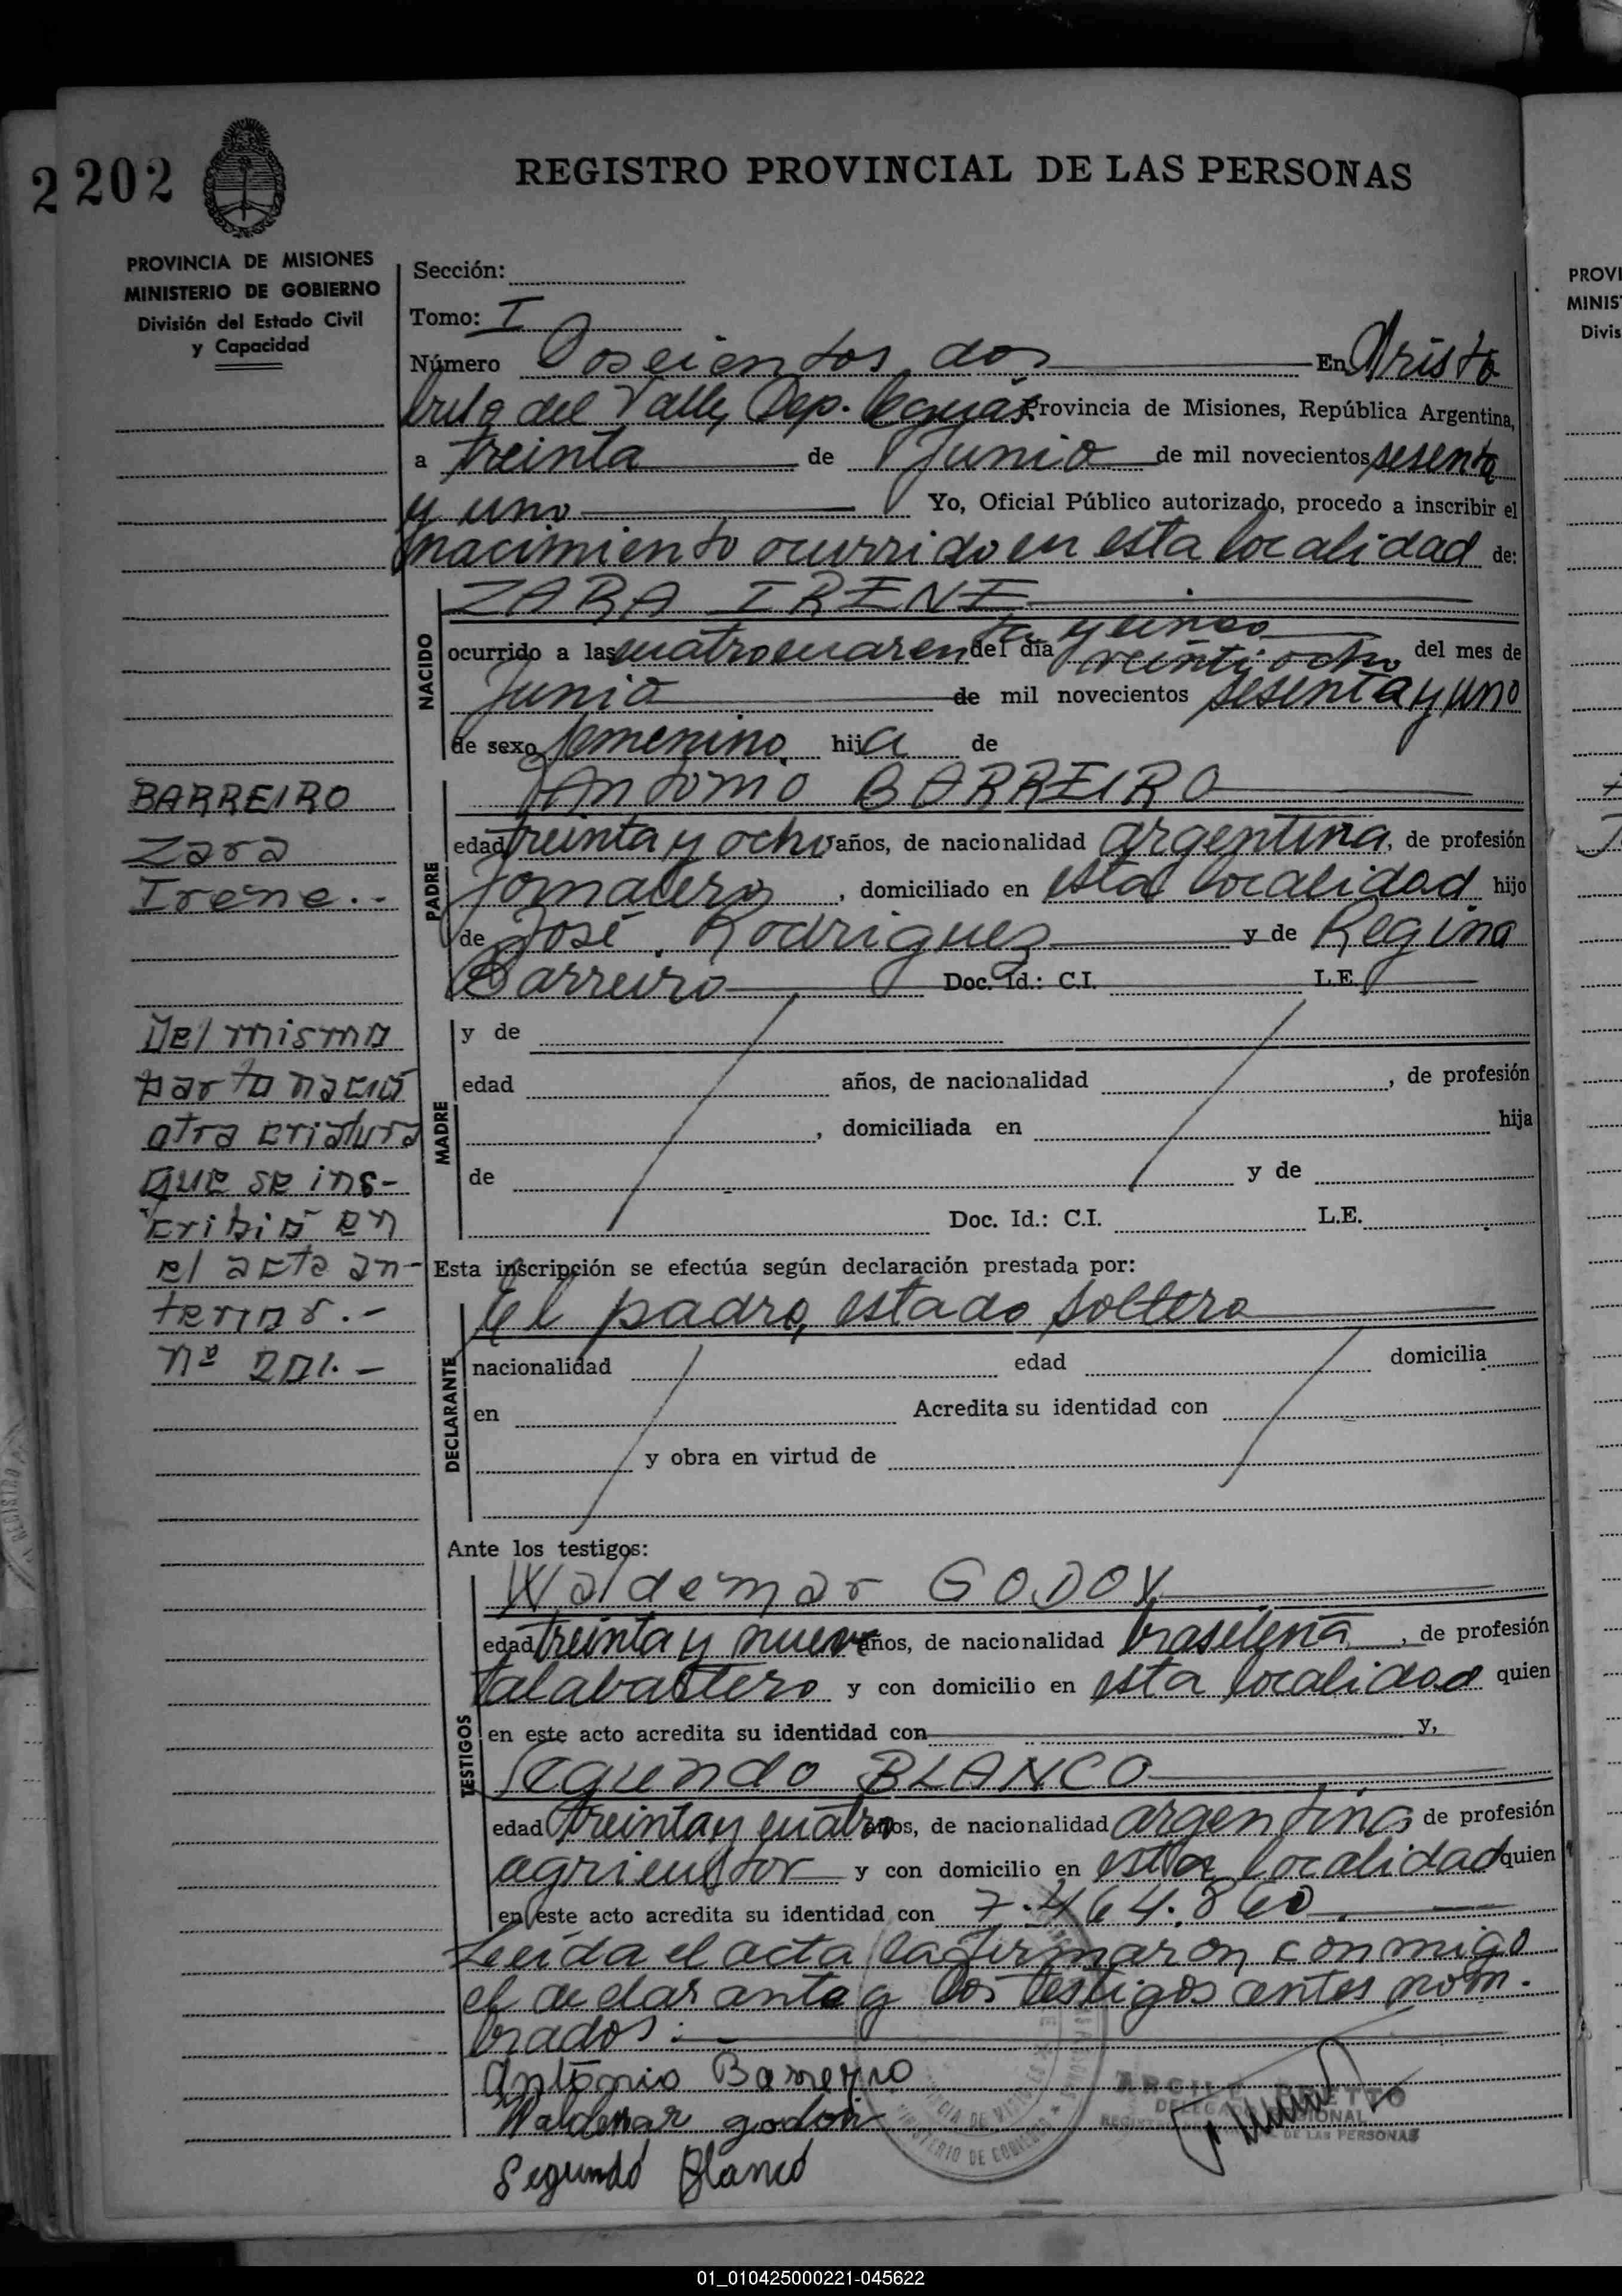 2 202
REGISTRO PROVINCIAL DE LAS PERSONAS
PROVINCIA DE MISIONES
MINISTERIO DE GOBIERNO
División del Estado Civil
y Capacidad
Sección:
Tomo: I
Número Doscientos dos En Aristo
bulo del Valle, Dep. Cguás Provincia de Misiones, República Argentina,
a treinta de Junio de mil novecientos sesenta
y uno Yo, Oficial Público autorizado, procedo a inscribir el
nacimiento ocurrido en esta localidad de:
NACIDO
ZARA IRENE
ocurrido a las cuatro cuarenta y cinco del día veintiocho del mes de
Junio de mil novecientos sesenta y uno
de sexo femenino hija de
PADRE
Antonio BARREIRO
edad treinta y ocho años, de nacionalidad argentina, de profesión
Jornalero, domiciliado en esta localidad hijo
de José Rodriguez y de Regina
Barreiro Doc. Id.: C.I. L.E.
BARREIRO
Zara
Irene.-
Del mismo
parto nació
otra criatura
que se ins-
cribió en
el acta an-
terior.-
nº 201.-
MADRE
y de
edad años, de nacionalidad , de profesión
, domiciliada en hija
de y de
Doc. Id.: C.I. L.E.
Esta inscripción se efectúa según declaración prestada por:
DECLARANTE
El padre, estado soltero
nacionalidad edad domicilia
en Acredita su identidad con
y obra en virtud de
Ante los testigos:
TESTIGOS
Waldemar GODOY
edad treinta y nueve años, de nacionalidad brasileña, de profesión
talabartero y con domicilio en esta localidad quien
en este acto acredita su identidad con y,
Segundo BLANCO
edad treinta y cuatro años, de nacionalidad argentina de profesión
agricultor y con domicilio en esta localidad quien
en este acto acredita su identidad con 7.464.860.
Leída el acta la firmaron conmigo
el declarante y los testigos antes nom-
brados:
Antonio Barreyro
Waldemar godoi
Segundo Blanco
DELEGADO REGIONAL
DE LAS PERSONAS
MINISTERIO DE GOBIERNO
PROVI
MINIS
Divis
01_010425000221-045622